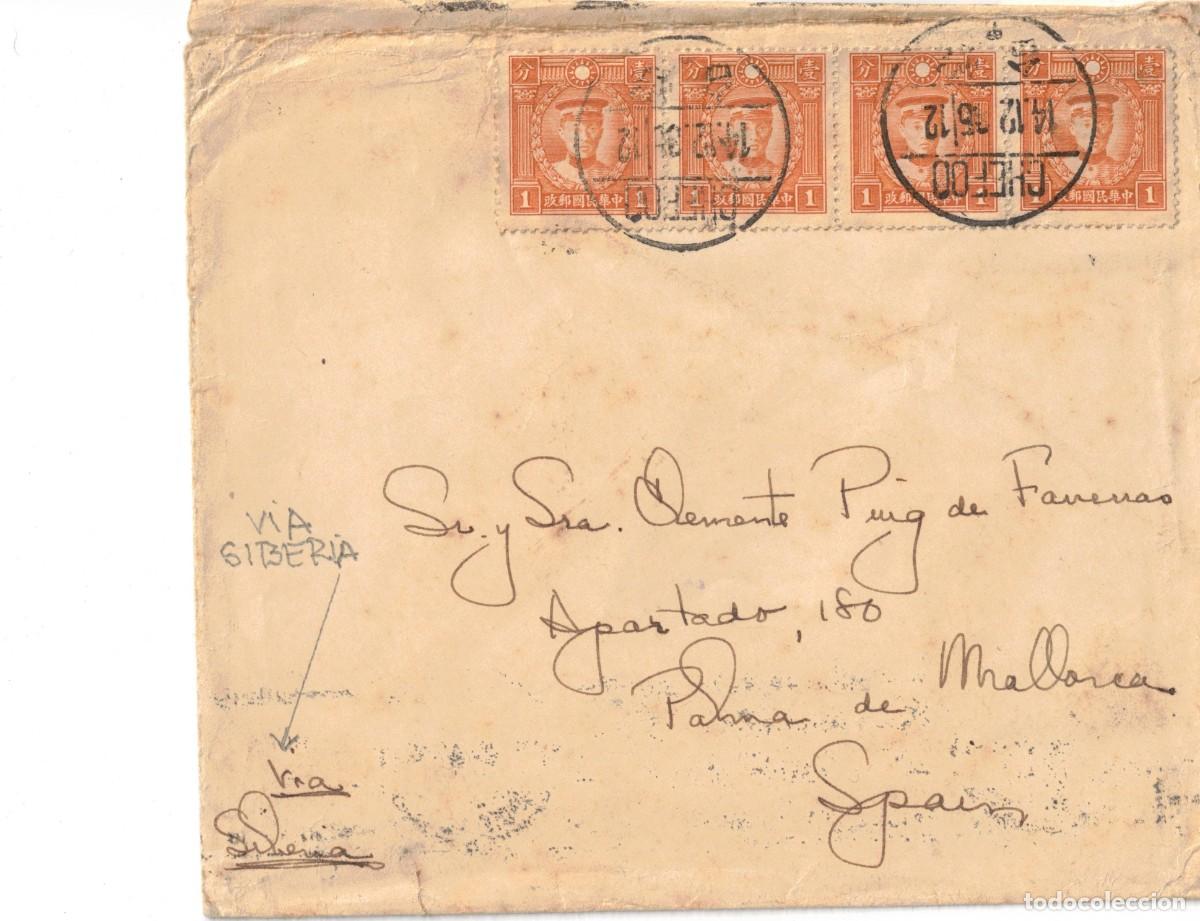 分 壹 分 壹 分 壹 分 壹
1 政郵國民華中 1 政郵國民華中 1 政郵國民華中 1 政郵國民華中
CHEFOO
14.12.35/12
CHEFOO
14.12.35/12
Sr. y Sra. Clemente Puig de
Apartado, 180
Palma de Mallorca
Spain
VIA
SIBERIA
Via
Siberia
todocoleccion